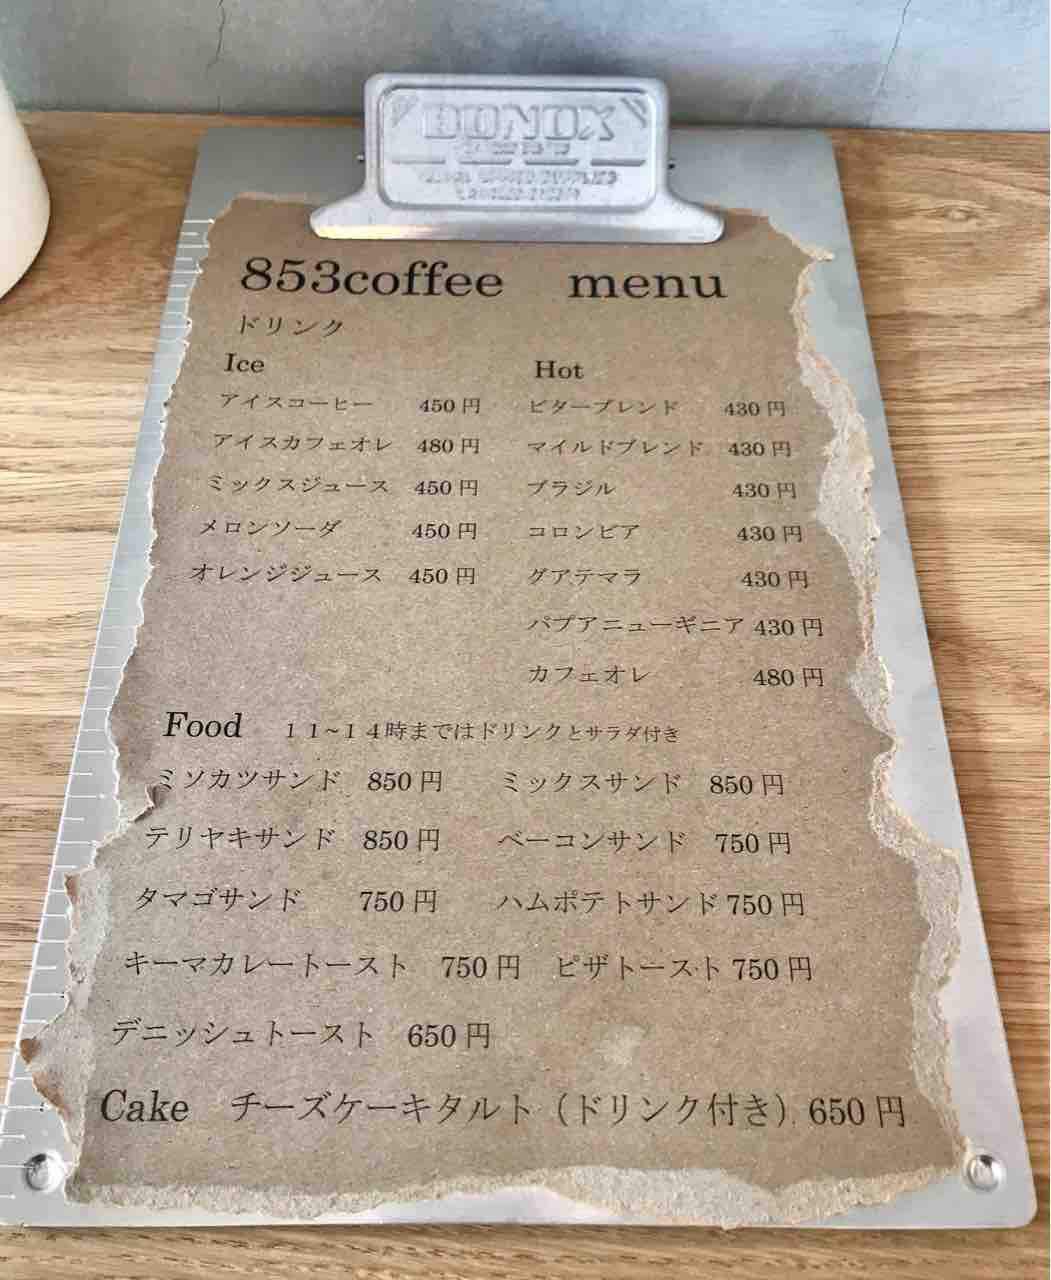 BONOX
853coffee　menu
ドリンク
Ice
アイスコーヒー　450 円
アイスカフェオレ　480 円
ミックスジュース　450 円
メロンソーダ　450 円
オレンジジュース　450 円
Hot
ビターブレンド　430 円
マイルドブレンド　430 円
ブラジル　430 円
コロンビア　430 円
グアテマラ　430 円
パプアニューギニア 430 円
カフェオレ　480 円
Food　１１~１４時まではドリンクとサラダ付き
ミソカツサンド　850 円　ミックスサンド　850 円
テリヤキサンド　850 円　ベーコンサンド　750 円
タマゴサンド　750 円　ハムポテトサンド 750 円
キーマカレートースト　750 円　ピザトースト 750 円
デニッシュトースト　650 円
Cake　チーズケーキタルト（ドリンク付き）650 円